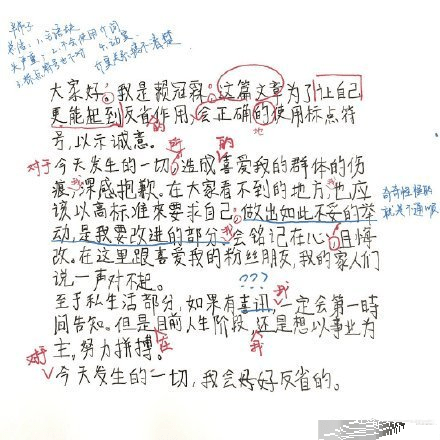 总结：1.主语缺
2.不会使用个词
3.标点符号也不对
大家好，我是赖冠霖，这篇文章为了让自己
更能起到反省作用，会正确的使用标点符
的
地
号，以示诚意。
所
的
对于
今天发生的一切，造成喜爱我的群体的伤
痕，深感抱歉。在大家看不到的地方，也应
我
该以高标准来要求自己。做出如此不妥的举
奇奇怪怪的
就是不通顺
动，是我要改进的部分，会铭记在心，且悔
我
改。在这里跟喜爱我的粉丝朋友，我的家人们
说一声对不起。
???
我
至于私生活部分，如果有喜讯，一定会第一時
间告知。但是目前人生阶段，还是想以事业为
在
我
主，努力拼搏。
对于
今天发生的一切，我会好好反省的。